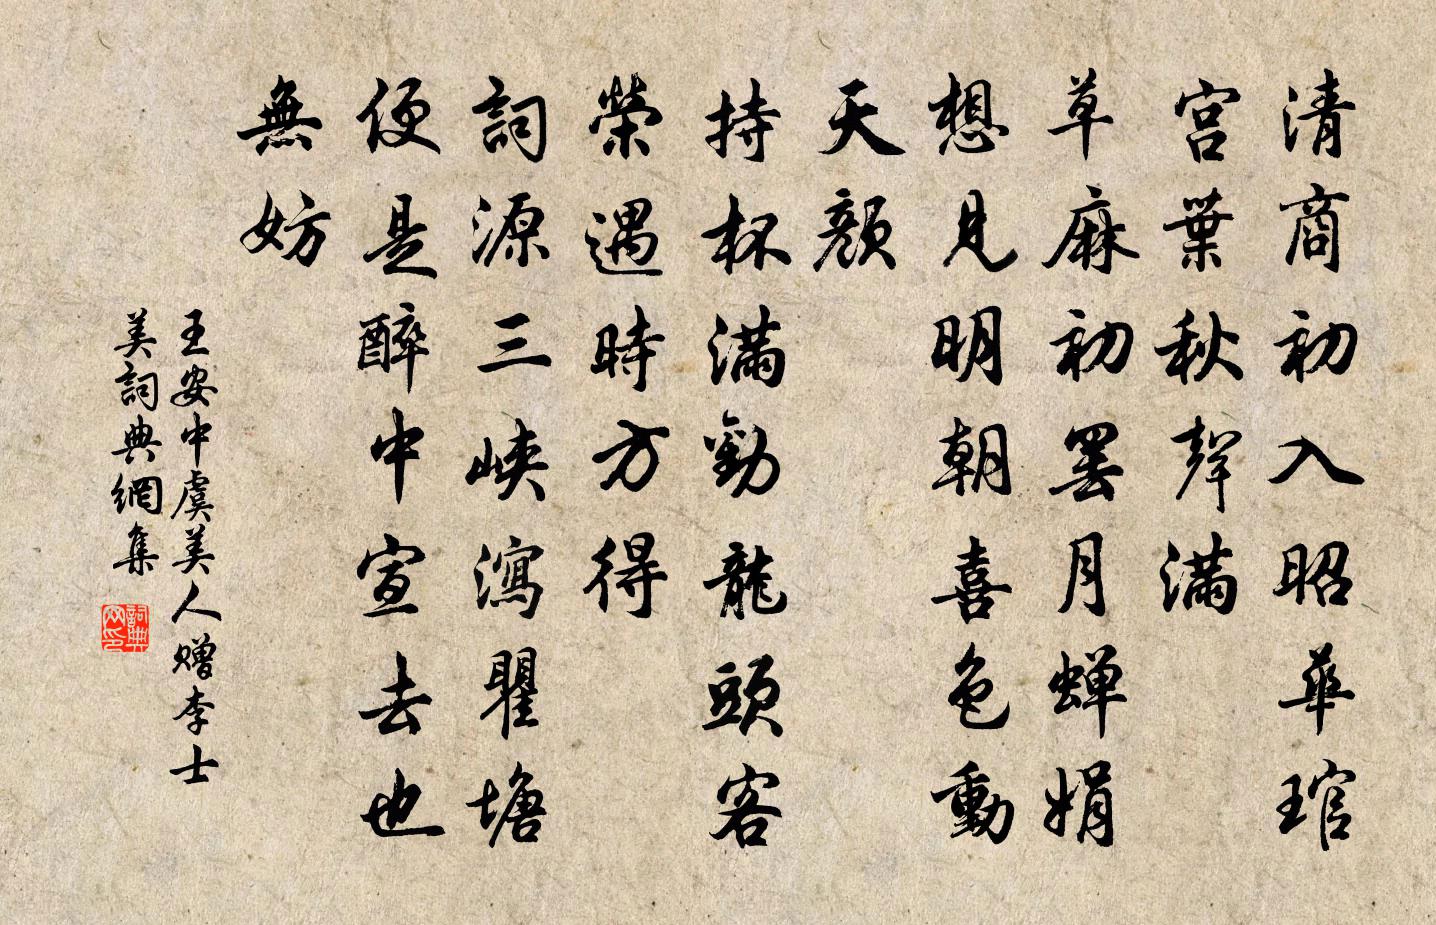 清商初入昭華琯
宮葉秋聲滿
草麻初罷月蟬娟
想見明朝喜色動
天顏
持杯滿勸龍頭客
榮遇時方得
詞源三峽瀉瞿塘
便是醉中宣去也
無妨
王安中虞美人贈李士
美詞典網集
詞典網印